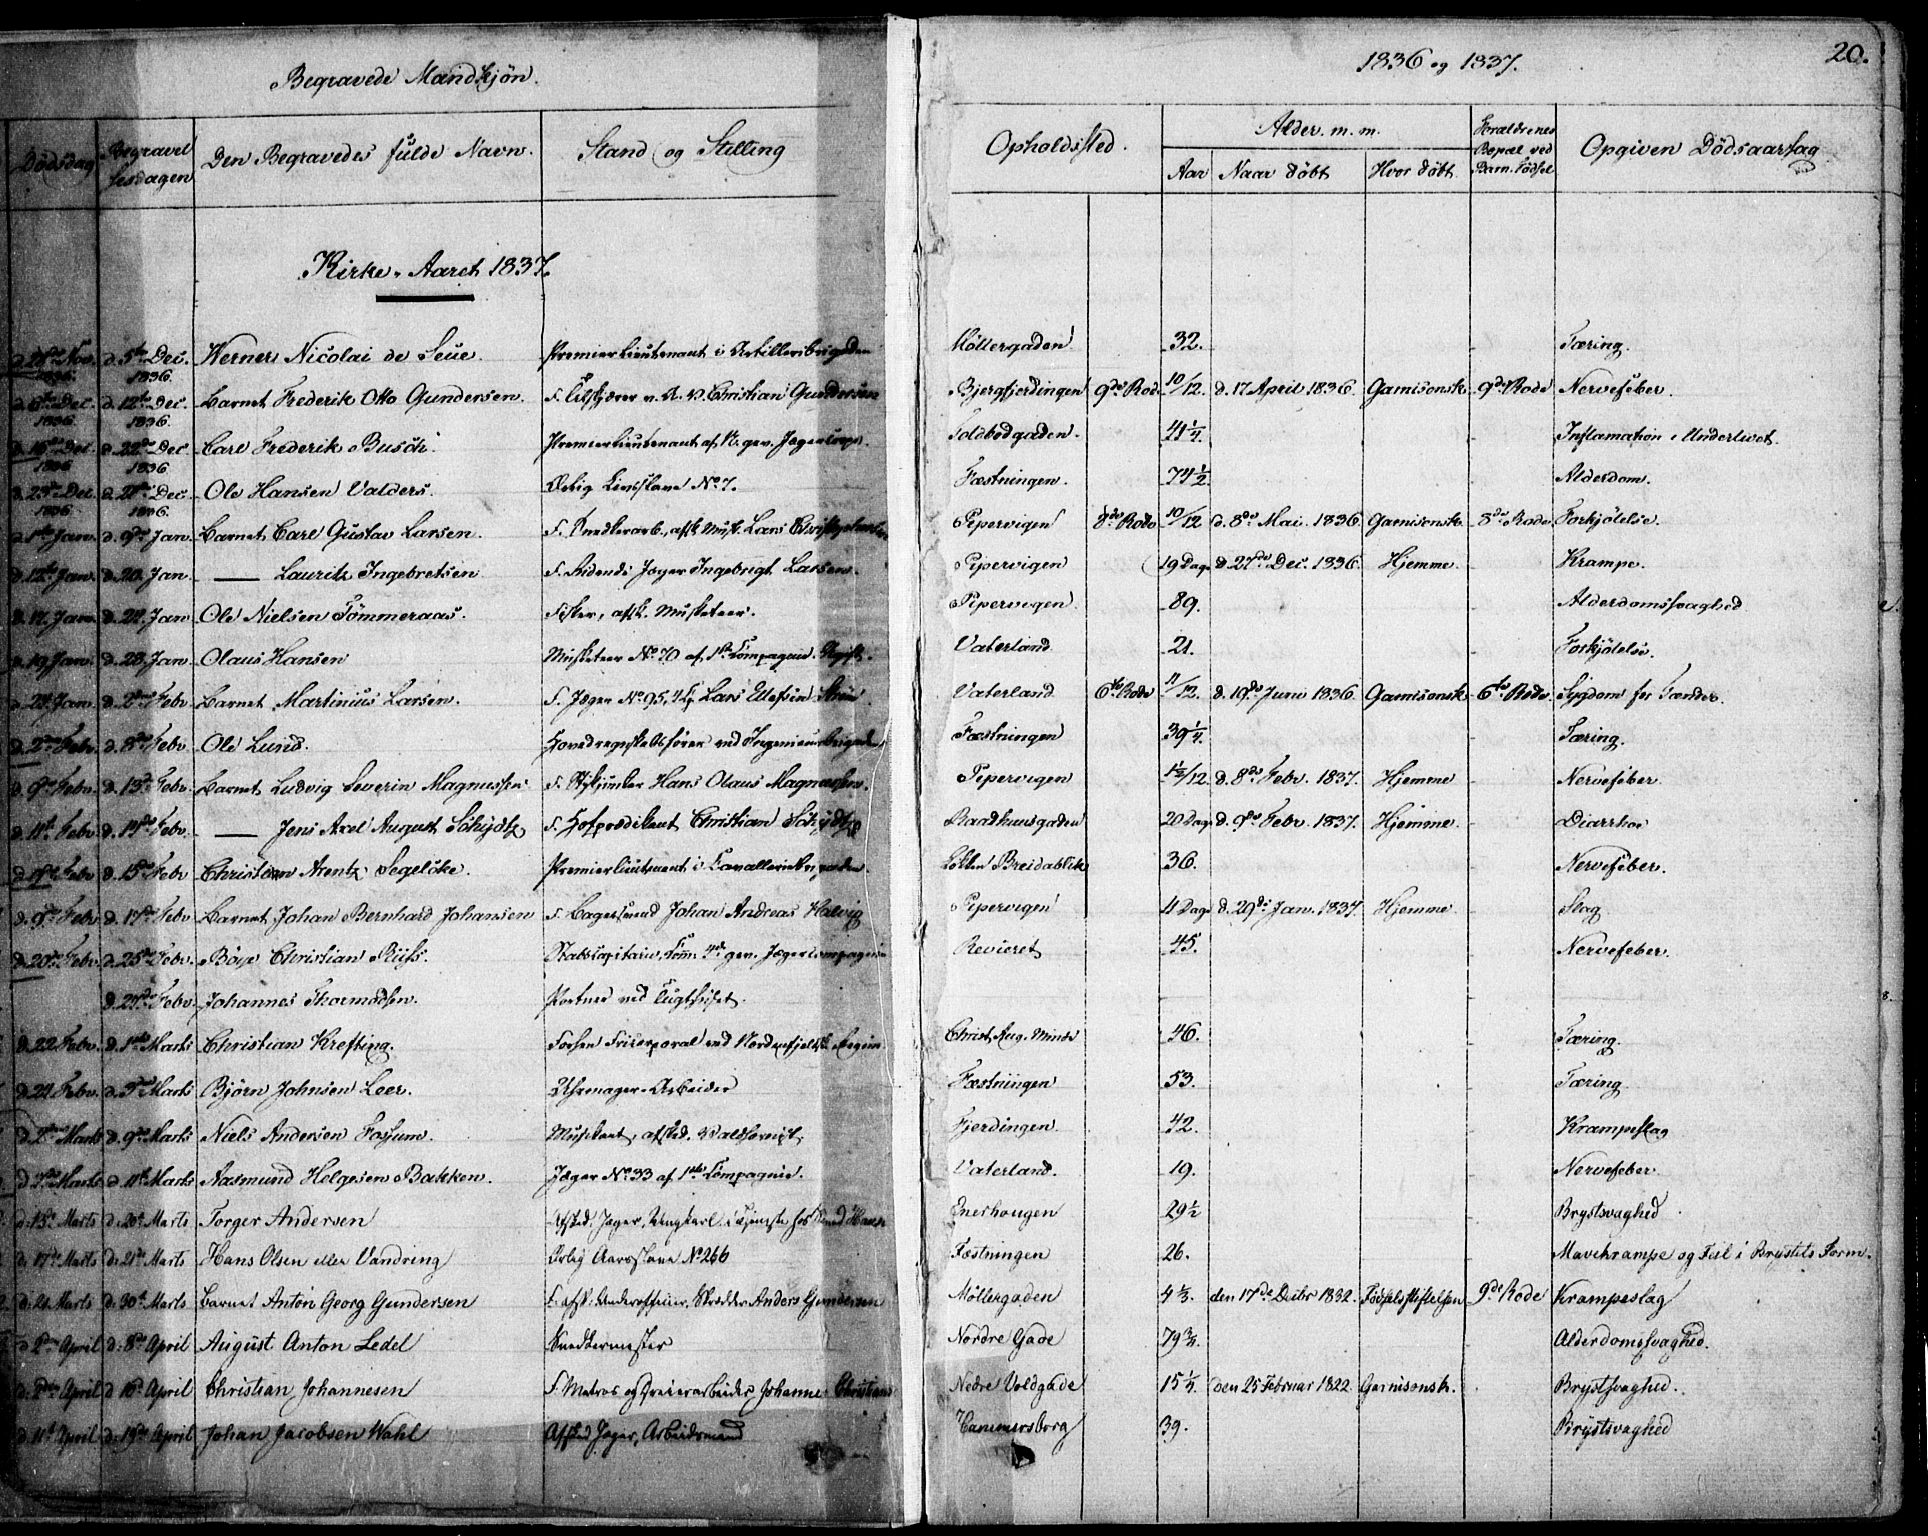 Begravede Mandkjøn.
1836 og 1837.
20.
Dødsdag
Begravelsesdagen
Den Begravedes fulde Navn.
Stand og Stilling
Opholdssted.
Alder m. m.
Aar
Naar døbt
Hvor døbt
Forældrenes Bopæl ved Barn. Fødsel
Opgiven Dødsaarsag
Kirke-Aaret 1837.
Nov. 1836. d. 5te Dec. 1836. Werner Nicolai de Seue. Premierlieutenant i Artilleribrigaden Møllergaden 32. Tæring.
d. 6te Dec. 1836. d. 12te Dec. 1836. Barnet Frederik Otto Gundersen. Christian Gundersen Bjergfjerdingen 9de Rode 10/12. d. 17 April 1836. Garnisonsk. 9de Rode Nervefeber.
Dec. 1836 d. 22de Dec. 1836 Carl Frederik Busch. Premierlieutenant af N. gev. Jægercorps. Toldbodgaden. 41 1/4. Inflamation i Underlivet.
d. 23de Dec. 1836. Dec. 1836. Ole Hansen Valders. Ærlig Livsslave No 7. Fæstningen. 74 1/2 Alderdom.
d. 1te Jan. d. 9de Jan. Barnet Carl Gustav Larsen. F. Snedkerarb., afsk. Musk. Lars Pepervigen 8de Rode 10/12 d. 8de Mai 1836. Garnisonsk. 8de Rode Forkjølelse.
d. 12te Jan. d. 20. Jan. — Lauritz Ingebretsen F. Ridende Jæger Ingebrigt Larsen. Pipervigen 19 Dage d. 27de Dec. 1836. Hjemme. Krampe.
d. 17. Jan. d. 27. Jan Ole Nielsen Tømmeraas. Fisker, afsk. Musketeer. Pipervigen 89. Alderdomssvaghed
d. 19 Jan. d. 28. Jan Olaus Hansen Musketeer No 70 af 1ste Compagnie. Vaterland 21. Forkjølelse.
d. 27. Jan. d. 2den Febr. Barnet Martinius Larsen. F. Jæger No 95, Lars Vaterland 6te Rode 11/12. d. 19de Juni 1836. Garnisonsk. 6te Rode. Sygdom for Tænder.
d. 2den Febr. d. 8de Febr. Ole Lund. Hovedregnskabsfører ved Ingenieurbrigaden Fæstningen 39 1/4. Tæring.
d. 9de Febr. d. 13de Febr. Barnet Ludvig Severin Magnussen F. Stykjunker Hans Olaus Magnussen. Pepervigen 1 1/2/12 d. 8de Febr. 1837. Hjemme Nervefeber.
d. 11te Febr. d. 14de Febr. — Jens Axel August Schydtz F. Hofprædikant Christian Schydtz Raadhuusgaden 20 Dage d. 9de Febr. 1837. Hjemme. Diarrhoe
Febr. d. 15de Febr Christian Arentz Segelcke. Premierlieutenant i Cavalleribrigaden. Løkken Breidablik 36. Nervefeber.
d. 9de Febr d. 17de Febr Barnet Johan Bernhard Johansen F. Bagersvend Johan Andreas Helvig Pipervigen 11 Dage d. 29de Jan. 1837. Hjemme Slag
d. 20de Febr. d. 25de Febr. Bøye Christian Riis. Stabscapitain, Com. 4de gev. Jægercompagnie Revieret 45. Nervefeber.
d. 27de Febr. Johannes Thormodsen. Portner ved Tugthuset.
d. 22 Febr. d. 1ste Marts Christian Krefting. Forhen Fricorporal ved Nordenfjeldsk. Regim. Christ. Aug. Minde 46. Tæring.
d. 24 Febr. d. 3die Marts Bjørn Johnsen Leer. Uhrmager-Arbeider Fæstningen 53. Tæring.
d. 2den Marts d. 9de Marts Niels Andersen Fossum. Musikant, afsked. Waldhornist. Fjerdingen 42. Krampeslag
d. 7de Marts d. 11te Marts Aasmund Helgesen Bakken. Jæger No 33 af 1ste Compagnie. Vaterland. 19. Nervefeber
d. 13de Marts d. 20de Marts Torger Andersen Afsked. Jæger, Ungkarl i Tjeneste hos Enerhougen 29 1/2 Brystsvaghed
d. 17de Marts d. 21de Marts Hans Olsen eller Vandring Ærlig Aarsslave No 266 Fæstningen 26. Mavekrampe og Feil i Brystets Form.
d. 21. Marts d. 30te Marts Barnet Anton Georg Gundersen F. afsk. Underofficier, Skrædder Anders Gundersen Møllergaden 4 1/3. den 17de Decbr 1832. Fødselsstiftelsen 9de Rode Krampeslag
d. 2den April d. 8de April August Anton Ledel Snedkermester Nordre Gade 79 3/4. Alderdomssvaghed.
d. 2den April d. 10de April Christian Johannesen F. Matros og Dreierarbeider Johannes Christians Nedre Voldgade 15 1/4. den 25 Februar 1822 Garnisonsk. Brystsvaghed.
d. 11te April d. 19de April Johan Jacobsen Wahl Afsked. Jæger, Arbeidsmand Hammersborg 39. Brystsvaghed